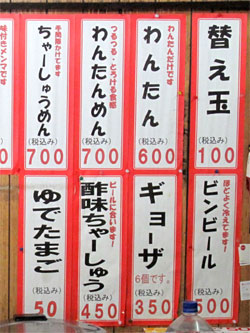 替え玉
(税込み)
100
わんたんだけです
わんたん
(税込み)
600
つるつる・とろける食感
わんたんめん
(税込み)
700
手間暇かけてます
ちゃーしゅうめん
(税込み)
700
味付きメンマです
0
ほどよく冷えてます!
ビンビール
(税込み)
500
ギョーザ
6個です。
(税込み)
350
ビールに合います!
酢味ちゃーしゅう
(税込み)
450
ゆでたまご
(税込み)
50
0